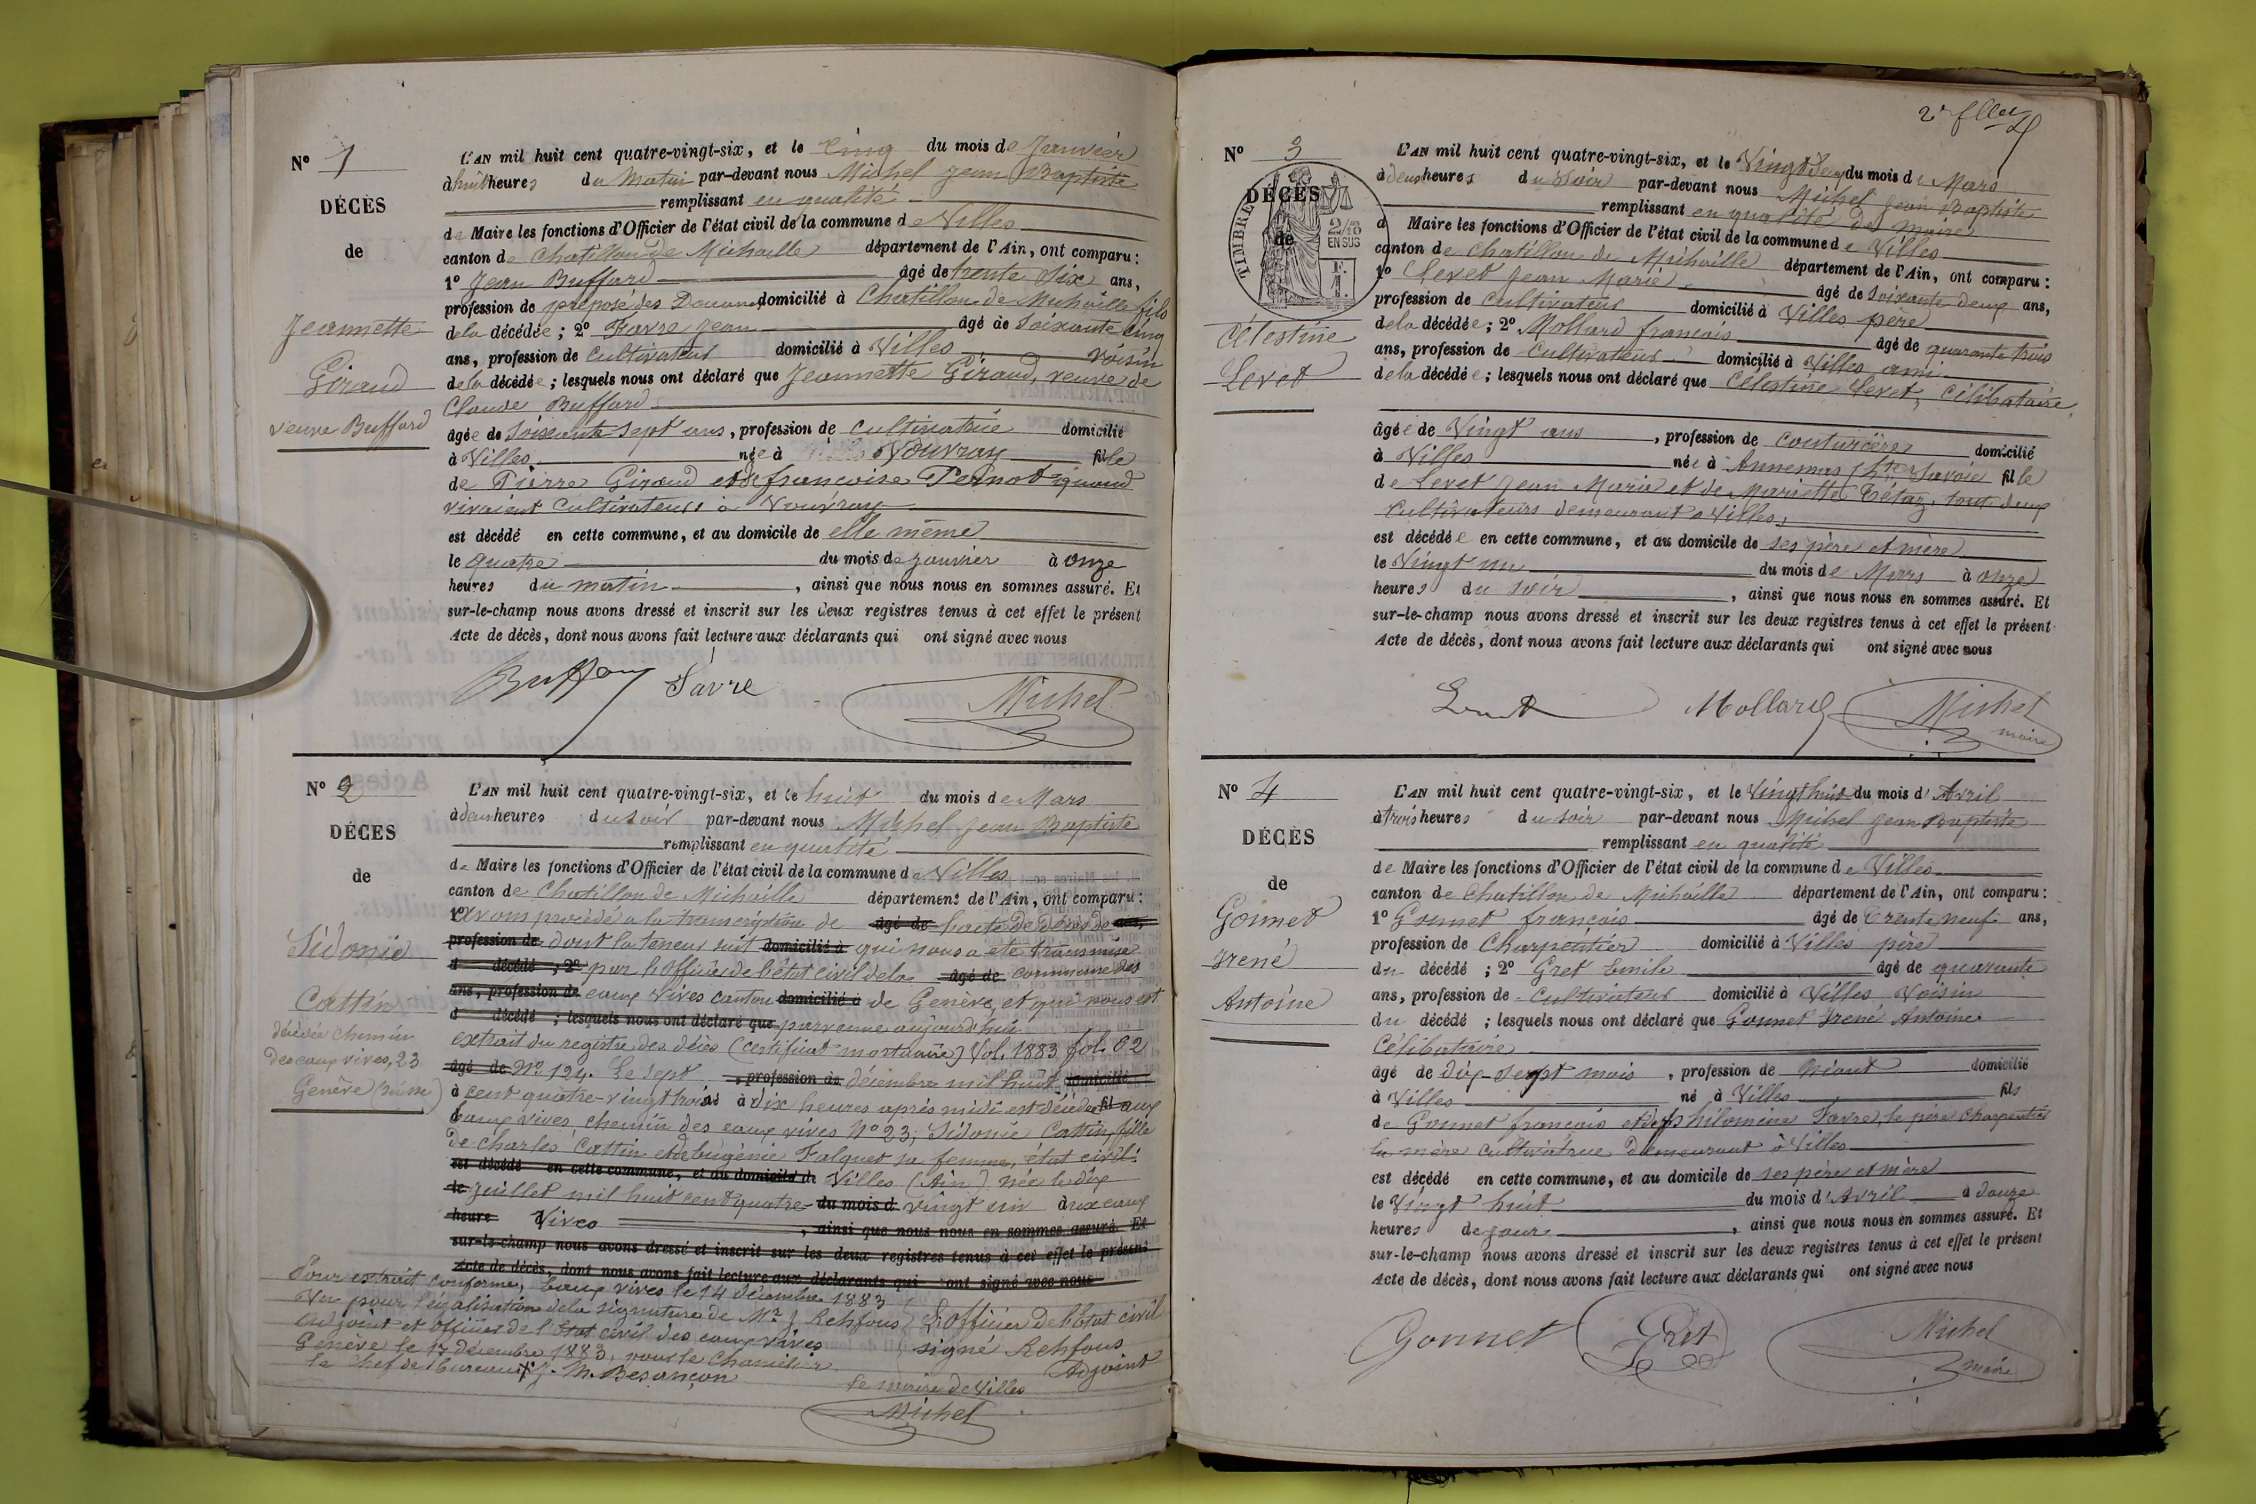 N° 1
DÉCÈS
de
Jeannette
Giraud
veuve Buffard
L'AN mil huit cent quatre-vingt-six, et le cinq du mois de Janvier
à huit heures du Matin par-devant nous Michel Jean Baptiste
remplissant en qualité
de Maire les fonctions d'Officier de l'état civil de la commune de Villes
canton de Chatillon de Michaille département de l'Ain, ont comparu :
1° Jean Buffard âgé de trente Six ans,
profession de préposé des Douanes domicilié à Chatillon de Michaille fils
de la décédée ; 2° Favre Jean âgé de Soixante cinq
ans, profession de cultivateur domicilié à Villes voisin
de la décédée ; lesquels nous ont déclaré que Jeannette Giraud, veuve de
Claude Buffard
âgée de Soixante Sept ans, profession de cultivatrice domicilié
à Villes née à Vouvray fille
de Pierre Giraud et de françoise Pernod quand
vivaient Cultivateurs à Vouvray
est décédé en cette commune, et au domicile de elle même
le quatre du mois de janvier à onze
heures du matin , ainsi que nous nous en sommes assuré. Et
sur-le-champ nous avons dressé et inscrit sur les deux registres tenus à cet effet le présent
Acte de décès, dont nous avons fait lecture aux déclarants qui ont signé avec nous
Buffard Favre Michel
N° 2
DÉCÈS
de
Sidonie
Cattin
décédée chemin
des eaux vives, 23
Genève (suisse)
L'AN mil huit cent quatre-vingt-six, et le huit du mois de Mars
à deux heures du soir par-devant nous Michel Jean Baptiste
remplissant en qualité
de Maire les fonctions d'Officier de l'état civil de la commune de Villes
canton de Chatillon de Michaille département de l'Ain, ont comparu :
1° Avons procédé a la transcription de âgé de l'acte de Décès de ans,
profession de dont la teneur suit domicilié à qui nous a été transmise
d décédé ; 2° par l'officier de l'état civil de la âgé de commune des
ans, profession de eaux vives canton domicilié à de Genève, et qui nous est
d décédé ; lesquels nous ont déclaré que parvenue aujourd'hui
extrait du registre des décès (certificat mortuaire) Vol. 1883 fol. 62
âgé de N° 124. Le sept , profession de décembre mil huit domicilié
à cent quatre-vingt trois à dix heures après midi est décédée fil aux
Eaux vives, chemin des eaux vives N° 23, Sidonie Cattin, fille
de Charles Cattin et de Eugénie Falquet sa femme, état civil :
est décédé en cette commune, et au domicile de Villes (Ain) née le dix
le Juillet mil huit cent quatre- du mois d vingt un à ux eaux
heure Vives , ainsi que nous nous en sommes assuré. Et
sur-le-champ nous avons dressé et inscrit sur les deux registres tenus à cet effet le présent
Acte de décès, dont nous avons fait lecture aux déclarants qui ont signé avec nous
Pour extrait conforme, Eaux vives le 14 décembre 1883
Vu pour légalisation de la signature de Mr J Rehfous L'officier de l'état civil
adjoint et officier de l'état civil des eaux vives signé Rehfous
Genève le 17 décembre 1883, pour le Chancelier Adjoint
le chef de bureau J. M. Besançon
Le maire de Villes
Michel
2e fllet
N° 3
DÉCÈS
de
TIMBRE
2/10
EN SUS
F.
1
Célestine
Levet
L'AN mil huit cent quatre-vingt-six, et le Vingt Deux du mois de Mars
à deux heures du Soir par-devant nous Michel Jean Baptiste
remplissant en qualité de maire
d Maire les fonctions d'Officier de l'état civil de la commune de Villes
canton de Chatillon de Michaille département de l'Ain, ont comparu :
1° Levet Jean Marie âgé de Soixante deux ans,
profession de cultivateur domicilié à Villes père
de la décédée ; 2° Mollard françois âgé de quarante trois
ans, profession de Cultivateur domicilié à Villes ami
de la décédée ; lesquels nous ont déclaré que Célestine Levet, Célibataire
âgée de Vingt ans , profession de couturière domicilié
à Villes née à Annemas Hte Savoie fille
de Levet Jean Marie et de Mariette Tétaz, tout deux
cultivateurs demeurant à Villes,
est décédée en cette commune, et au domicile de ses père et mère
le Vingt un du mois de Mars à onze
heures du soir , ainsi que nous nous en sommes assuré. Et
sur-le-champ nous avons dressé et inscrit sur les deux registres tenus à cet effet le présent
Acte de décès, dont nous avons fait lecture aux déclarants qui ont signé avec nous
Levet Mollard Michel
maire
N° 4
DÉCÈS
de
Gonnet
Irené
Antoine
L'AN mil huit cent quatre-vingt-six, et le Vingt huit du mois d'Avril
à trois heures du soir par-devant nous Michel Jean Baptiste
remplissant en qualité
de Maire les fonctions d'Officier de l'état civil de la commune de Villes
canton de Chatillon de Michaille département de l'Ain, ont comparu :
1° Gonnet françois âgé de Trente neuf ans,
profession de Charpentier domicilié à Villes père
du décédé ; 2° Gret Emile âgé de quarante
ans, profession de Cultivateur domicilié à Villes Voisin
du décédé ; lesquels nous ont déclaré que Gonnet Irené Antoine
Célibataire
âgé de dix-sept mois , profession de Néant domicilié
à Villes né à Villes fils
de Gonnet françois et de philomène Favre, le père charpentier
la mère cultivatrice demeurant à Villes
est décédé en cette commune, et au domicile de ses père et mère
le Vingt huit du mois d'Avril à douze
heures de jour , ainsi que nous nous en sommes assuré. Et
sur-le-champ nous avons dressé et inscrit sur les deux registres tenus à cet effet le présent
Acte de décès, dont nous avons fait lecture aux déclarants qui ont signé avec nous
Gonnet Gret Michel
maire